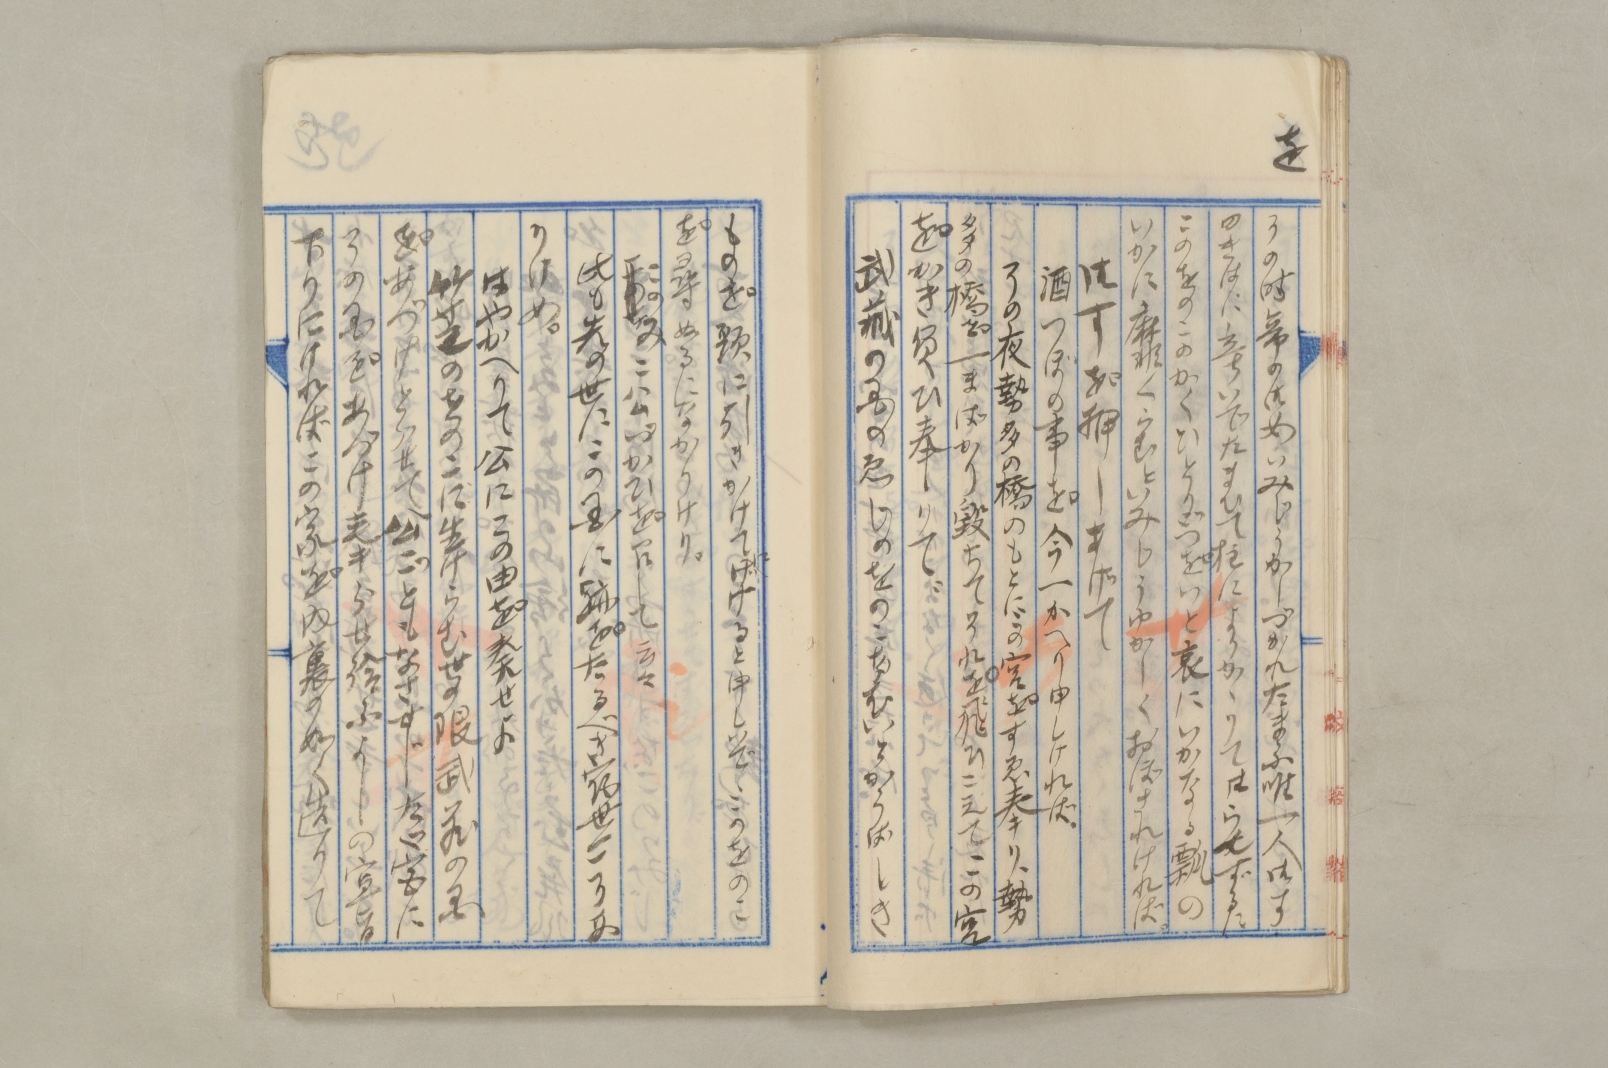 を
その時帝の御女いみじうかしづかれたまふ唯一人御す
のきはに立ちいでたまひて柱によりかゝりて御らむずるに
このをのこのかくひとりごつをいと哀にいかなる瓢の
いかに靡くらむといみじうゆかしくおぼされければ
御すを押しあげて
酒つぼの事を今一かへり申しければ
その夜勢多の橋のもとにこの宮をすゑ奉り、勢
多の橋を一まばかり毀ちてそれを飛びこえてこの宮
をかき負ひ奉りて
武蔵の国の衛じのをのこなむいとかうばしき
ものを頸に引きかけてにげけると申しいで、このをのこ
を尋ぬるになかりけり。
このみこ公づかひを召して云々
此も先の世にこの国に跡をたるべき宿世こそあ
りけめ。
はやかへりて公にこの由を奏せよ
竹芝のをのこに生けらむ世の限武蔵の国
をあづけとらせて公ごともなさせじ たゞ宮に
その国をあづけ奉らせ給ふよしの宣旨
下りにければこの家を内裏の如く造りて